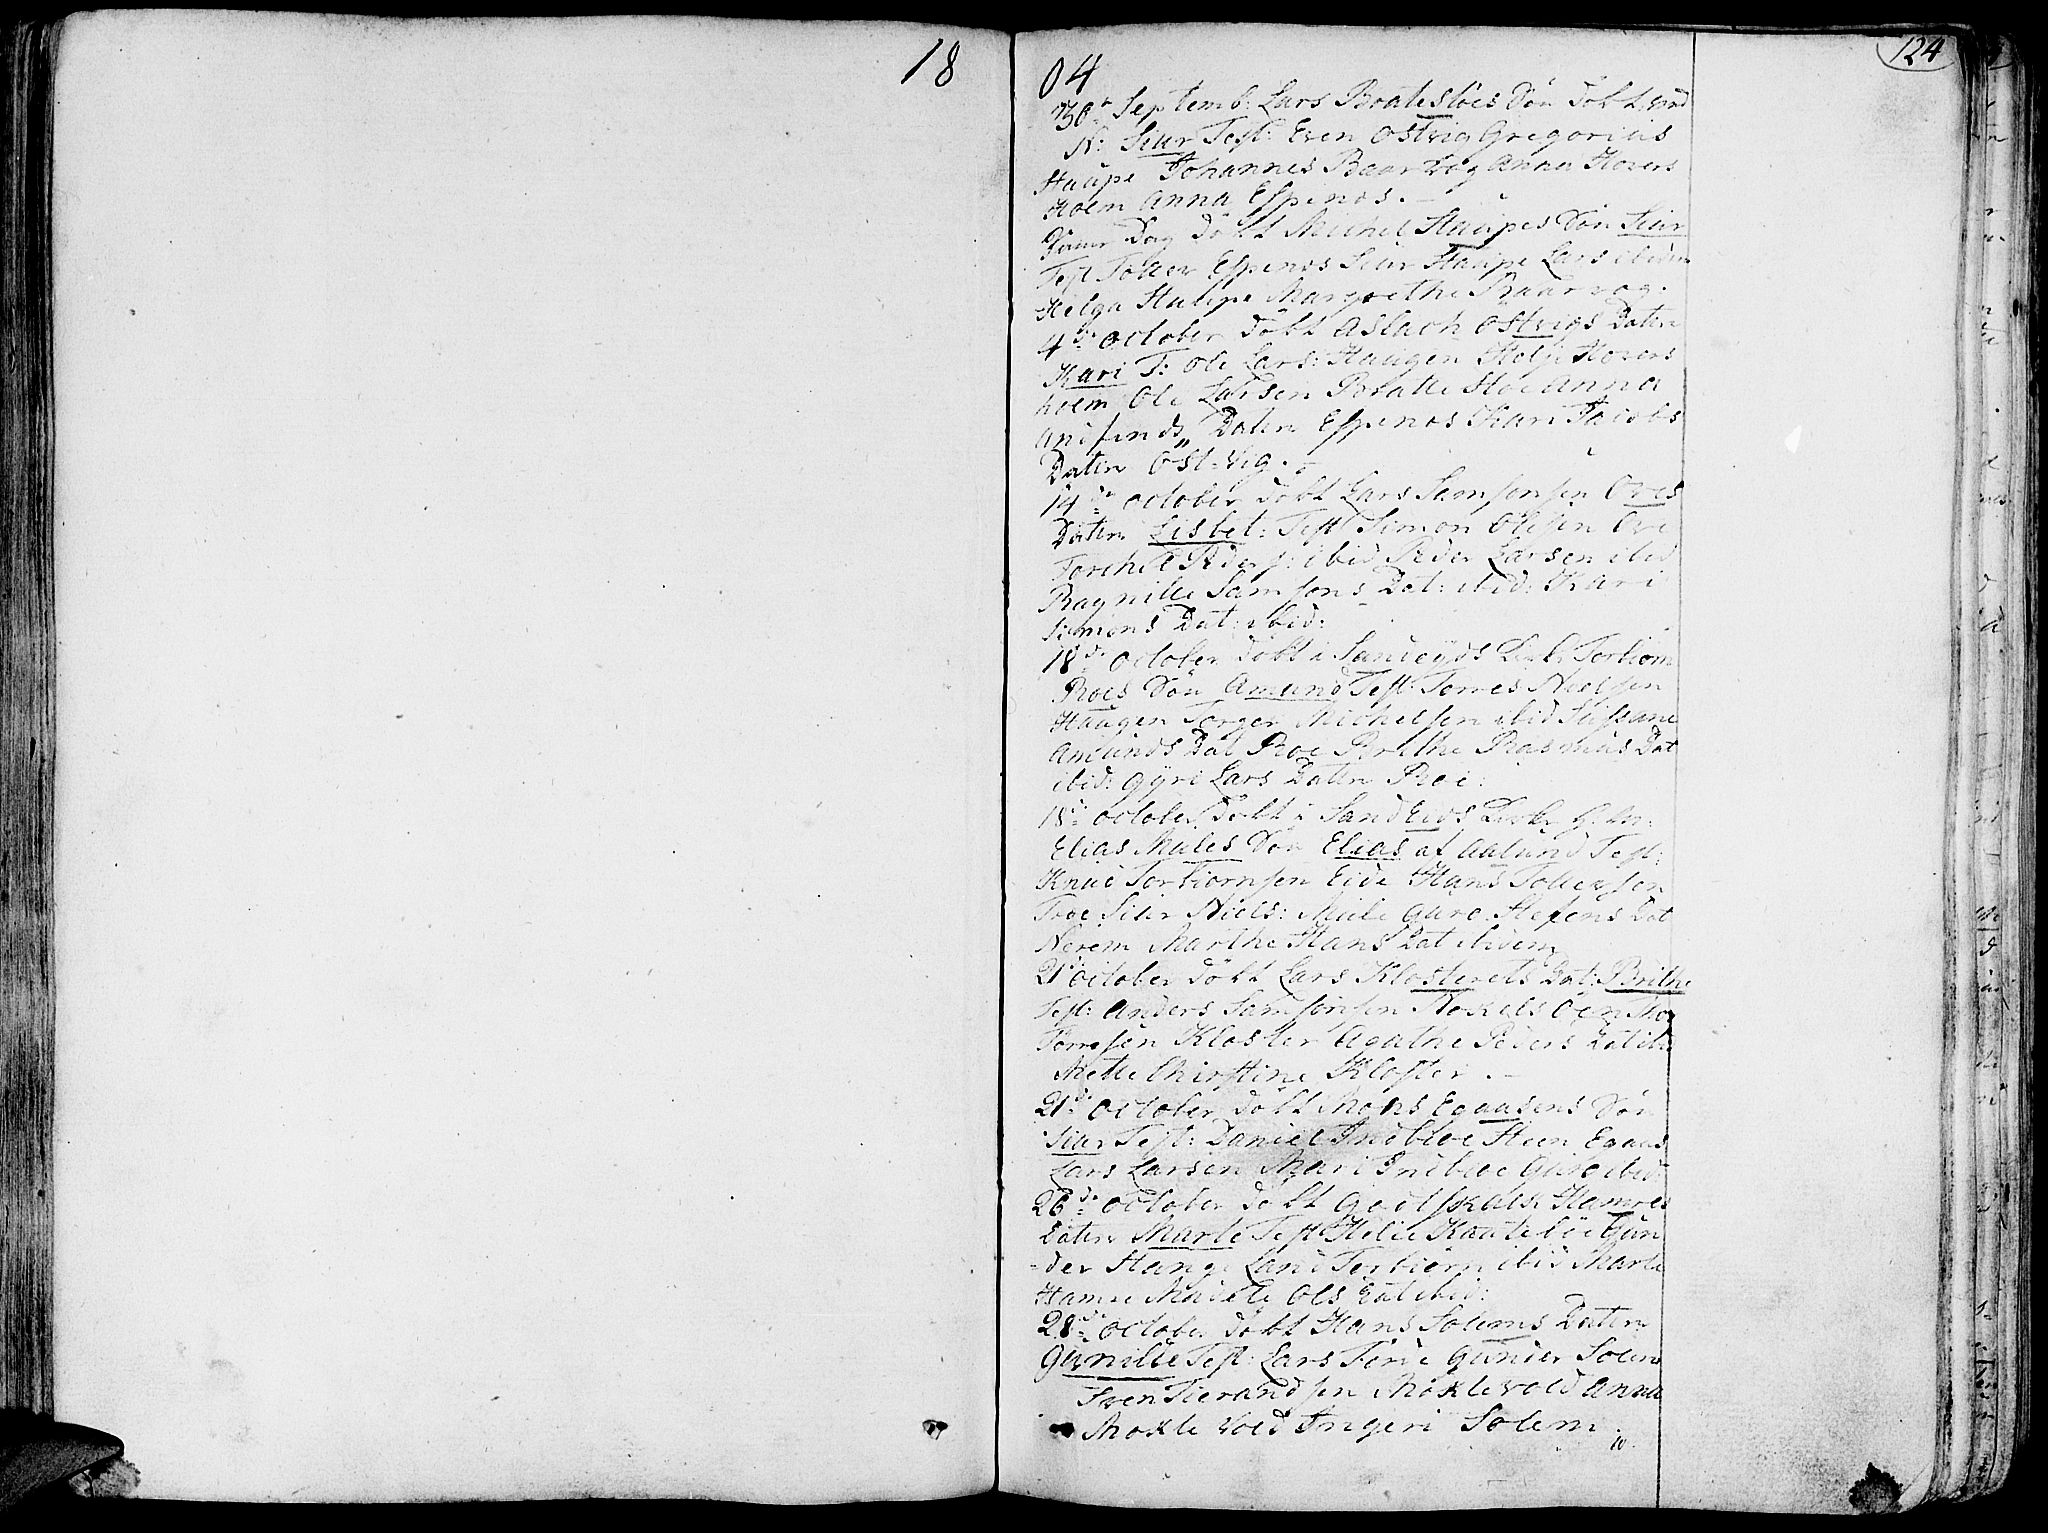 18
04
124
30te Septemb: Lars Bratestöes Sön Döbt ved
N: Siur Test: Even Ostvig Gregorius
Staupe Johannes Baarvog Anna Hovers
Hoem Anna Espenos.
Dag Döbt Michel Staupes Sön Siur
Test Tollev Espenos Siur Staupe Lars ibidm
Helga Staupe Margrethe Baarvog.
4de October Döbt Aslach Ostvigs Daten
Kari T: Ole Lars: Haugen Hovers
hoem Ole Larsen Bratte Stöe Anna
Daten Espenos Kari Jacobs
Daten Ost:vig.
14de October Döbt Lars Samsonsen Ores
Daten Lisbet: Test Simon Olesen Ore
Torchil Pders: ibid Peder Larsen ibid
Ragnille Samsons Dat: ibid: Kari
Simons Dat: ibid:
18de October Döbt i Sandeyds Kirke Torbiorn
Roes Sön Amund Test: Torres Nielsen
Haugen Torger Michelsen ibid Sussane
Amunds Dat Roe Brithe Rasmus Dat
ibid: Gyri Lars Daten Roe:
18de October Döbt i SandEids Kirke
Elias Mules Sön Elias af Aalund Test:
Knud Torbiornsen Eide Hans Tollevsen
Troe Siur Niels: Mule Guro Stefens Dat
Nerem Marthe Hans Dat ibidem
21de October Döbt Lars Klosterets Dat: Brithe
Test: Anders Samsonsen
Torresen Kloster Agathe Peders Dat ibi
Mette Chirstine Kloster.
21de October Döbt Mons Egaasens Sön
Siur Test: Daniel Indbloe Steen Egaas
Lars Larsen Mari Indbloe Guro ibid
26de October Döbt Godtskalk Hamres
Daten Marte Test Helie Kaateböe Gun
-der Stangeland Torbiörn ibid Marte
Hamre Madele Ols Dat ibid:
28de October Döbt Hans Solems Daten
Gunille Test: Lars Förde Gunder Solem
Sven Tierandsen Moklevold Anna
Moklevold Ingeri Solem